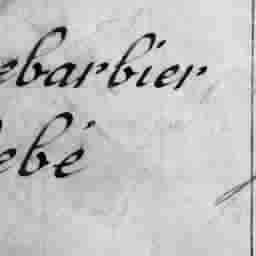 ebarbier
ebé